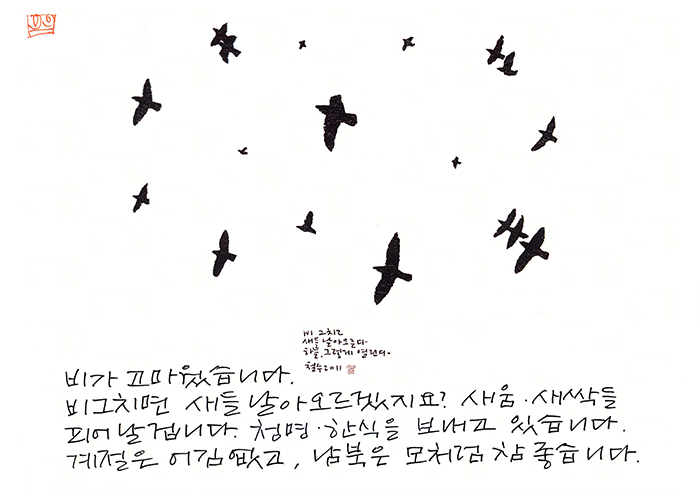 비 그치고
새들 날아오른다.
하늘, 그렇게 열린다.
철수 2011
비가 고마웠습니다.
비그치면 새들 날아오르겠지요? 새움·새싹들
피어날겁니다. 청명·한식을 보내고 있습니다.
계절은 어김없고, 남북은 모처럼 참 좋습니다.